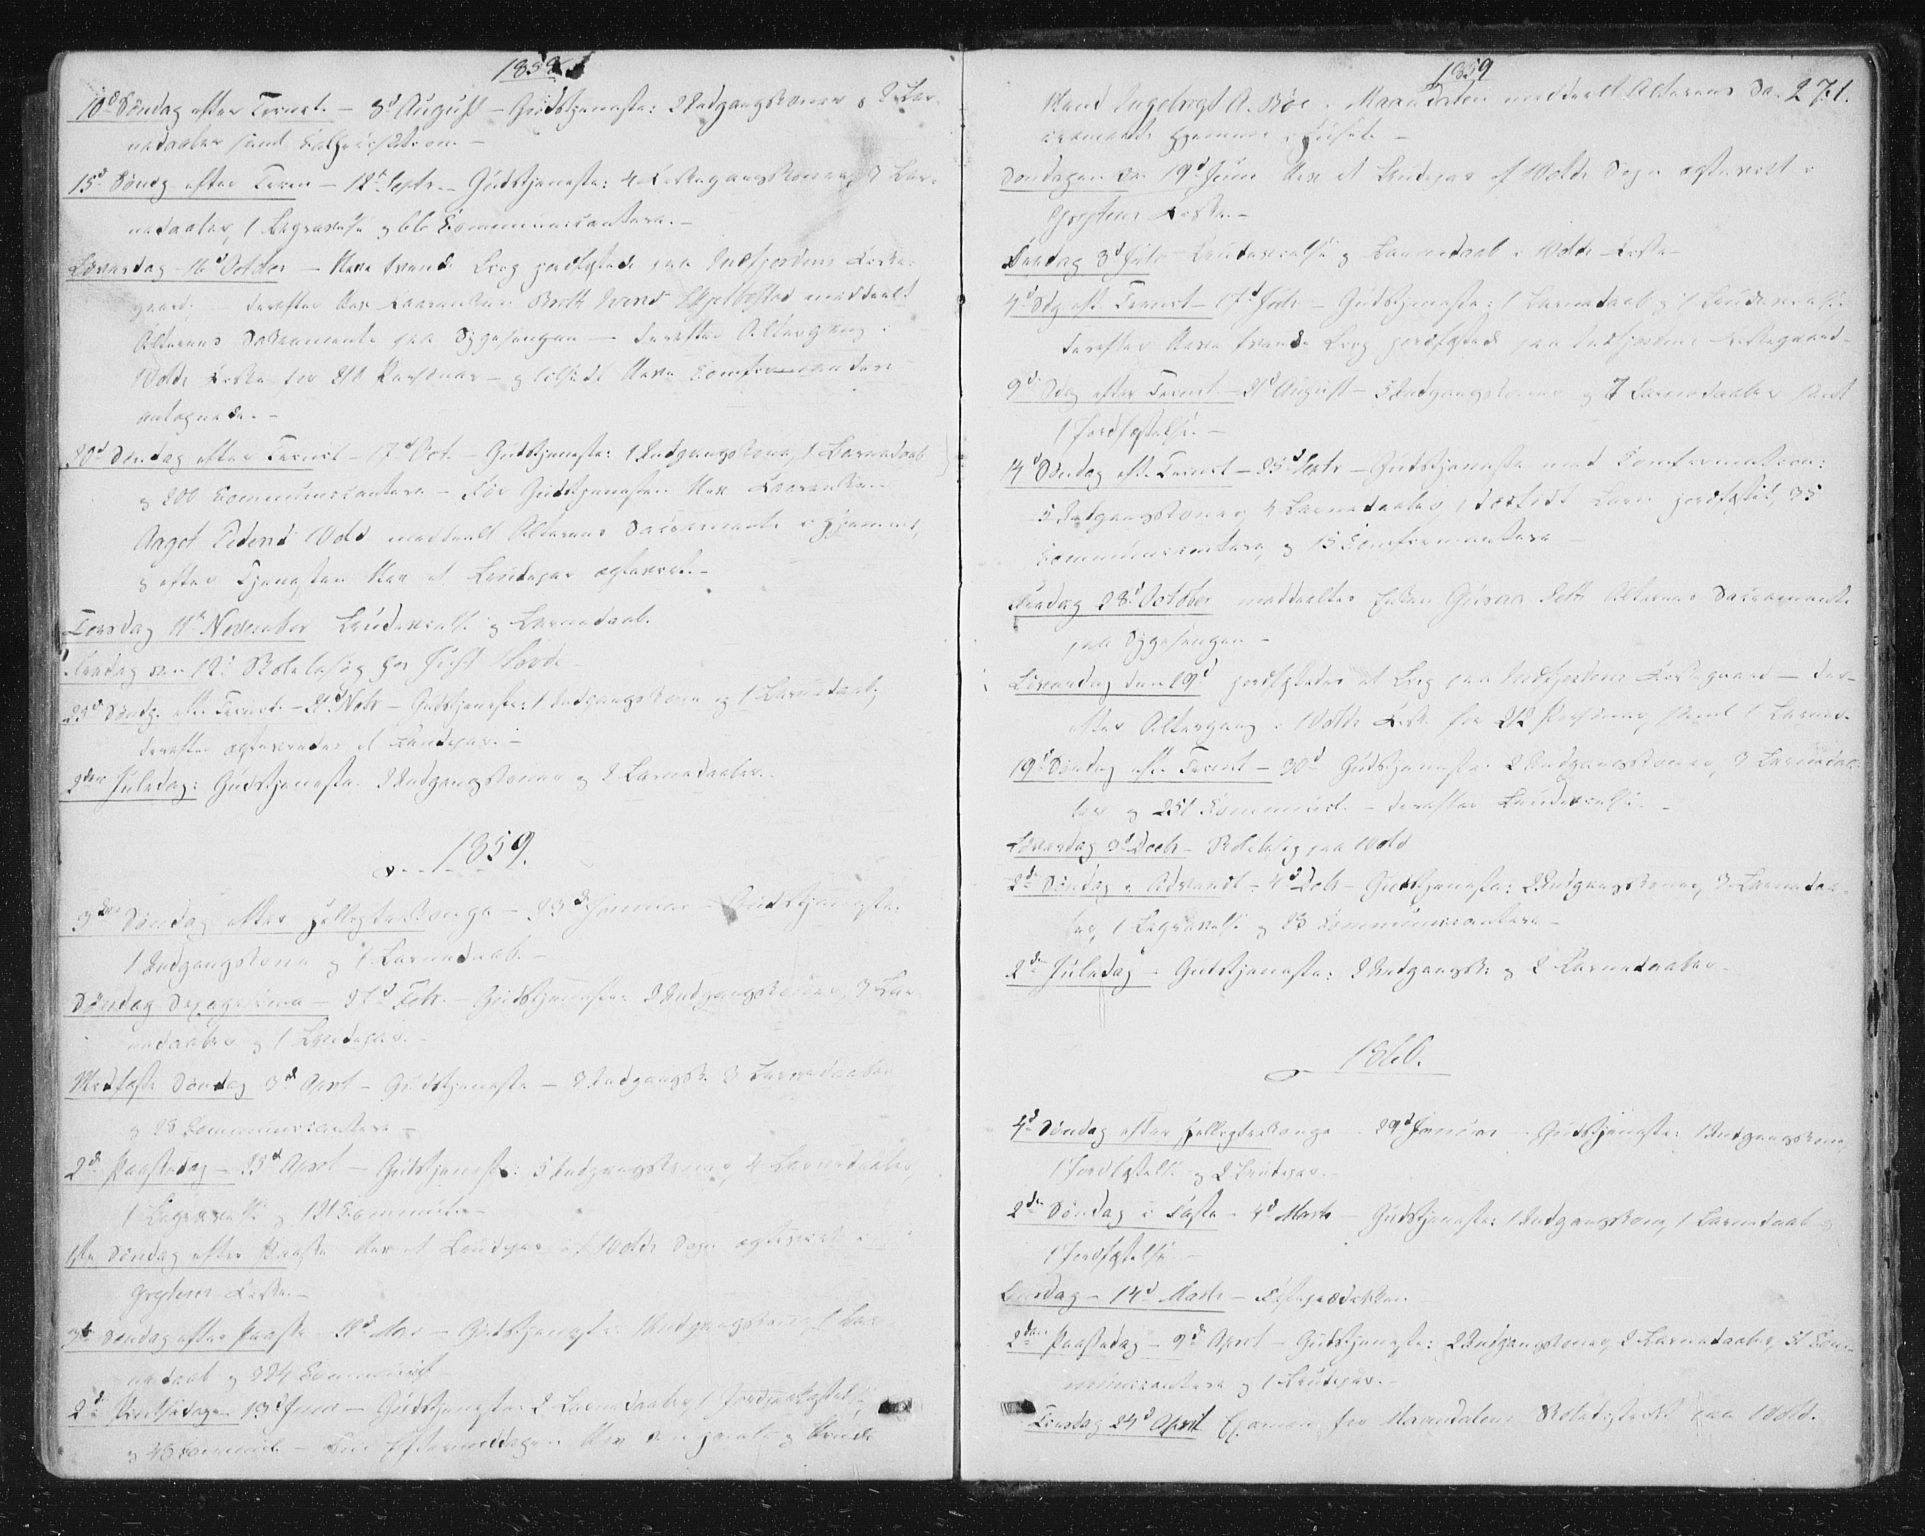 1858
10d Søndag efter Trinit. – 8d August – Gudstjeneste: 2 Indgangskoner, 2 Bar-
nedaaber samt
15d Søndg. efter Trin – 12d Septr. – Gudstjeneste: 4 Indgangskoner, 7 Bar-
nedaaber, 1 Begravelse og 66 Communicantere. –
Løverdag 16d October – Blev tvende Liig jordfæstede paa Indfjordens Kirke-
gaard; – derefter blev meddeelt
Alterens Sakramente paa Sygesengen – derefter Altergang i
Wolds Kirke for Personer – og tilsidst bleve Confirmandere
antegnede. –
20d Søndag efter Trinit – 17d Oct. – Gudstjeneste: 1 Indgangskone, 1 Barnedaab
og 200 Communicantere – Før Gudstjenesten blev
Wold meddeelt Alterens Sacramente i Hjemmet,
og efter Tjenesten blev et Brudepar ægteviet. –
Torsdag 11d November Brudevielse og Barnedaab.
Fredag den 12d
25d Søndg. eft. Trinit. – 21d Novbr – Gudstjeneste: 1 Indgangskone og 1 Barnedaab,
derefter ægteviedes et Brudepar. –
2den Juledag: Gudstjeneste. 2 Indgangskoner og 2 Barnedaaber. –
1859.
3den Søndag efter Helligtrekonge – 23d Januar – Gudstjeneste.
1 Indgangskone og 1 Barnedaab. –
Søndag Sexagesima – 27d Febr. – Gudstjeneste: 3 Indgangskoner, 3 Bar-
nedaaber og 1 Brudepar. –
Midfaste Søndag 3d April – Gudstjeneste – 3 Indgangsk. 3 Barnedaaber
og 28 Communicantere –
2d Paaskedag – 25d April – Gudstjeneste: 5 Indgangskoner, 4 Barnedaaber,
1 Begravelse og 121 Communic. –
1ste Søndag efter Paaske blev et Brudepar af Wolds Sogn ægteviet i
Grytens Kirke. –
Søndag efter Paaske – Mai – Gudstjeneste: 1 Indgangskone, 1 Bar-
nedaab og 224 Communic –
2d Pintsedag – 13d Juni – Gudstjeneste: 2 Barnedaaber, 1 Jordpaakastelse
og 46 Communic. – Om Eftermiddagen blev den gamle og blinde
1859
271.
Mand Ingebrigt A. Bøe i Marendalen meddeelt Alterens Sa-
cramente hjemme i Huset. –
Søndagen den 19d Juni blev et Brudepar af Wolds Sogn ægteviet i
Grytens Kirke. –
Søndag 3d Juli – Brudevielse og Barnedaab i Wolds Kirke –
4d Sdg eft. Trinit – 17d Juli – Gudstjeneste: 1 Barnedaab og 1 Brudevielse
derefter bleve tvende Liig jordfæstede paa Indfjordens Kirkegaard –
9d Sdg efter Trinit – 21d August – 5 Indgangskoner og 7 Barnedaaber samt
1 Jordfæstelse. –
14d Søndag eft. Trinit – 25d Septr – Gudstjeneste med Confirmation:
5 Indgangskoner, 4 Barnedaaber, 1 dødfødt Barn jordfæstet, 35
Communicantere, og 15 Confirmantere –
Fredag 28d October meddeeltes Enken Alterens Sacramente
paa Sygesengen –
Løverdag den 29d jordfæstedes et Liig paa Indfjordens Kirkegaard – der-
efter Altergang i Wolds Kirke for 212 Personer, samt 1 Barned.
19d Søndag eft. Trinit – 30d Gudstjeneste 2 Indgangskoner, 3 Barnedaa-
ber og 251 Communic. – derefter Brudevielse. –
Løverdag 3d Decbr. paa Wold
2de Søndag i Advendt – 4d Decbr – Gudstjeneste: 2 Indgangskoner, 3 Barnedaa-
ber, 1 Begravelse og 23 Communicantere –
2de Juledag – Gudstjeneste: 2 Indgangsk. og 2 Barnedaaber –
1860.
4d Søndag efter Helligtrekonge – 29d Januar – Gudstjeneste: 1 Indgangskone,
1 Jordfæstelse og 2 Brudepar. –
2de Søndag i Faste – 4d Marts – Gudstjeneste: 1 Indgangskone, 1 Barnedaab og
1 Jordfæstelse. –
14d Marts – Fasteprædiken
2den Paaskedag – 9d April – Gudstjeneste: 2 Indgangskoner, 2 Barnedaaber, 51 Com-
municantere og 1 Brudepar. –
Tirsdag 24d April Examen for Marendalens Roledistrikt paa Wold.